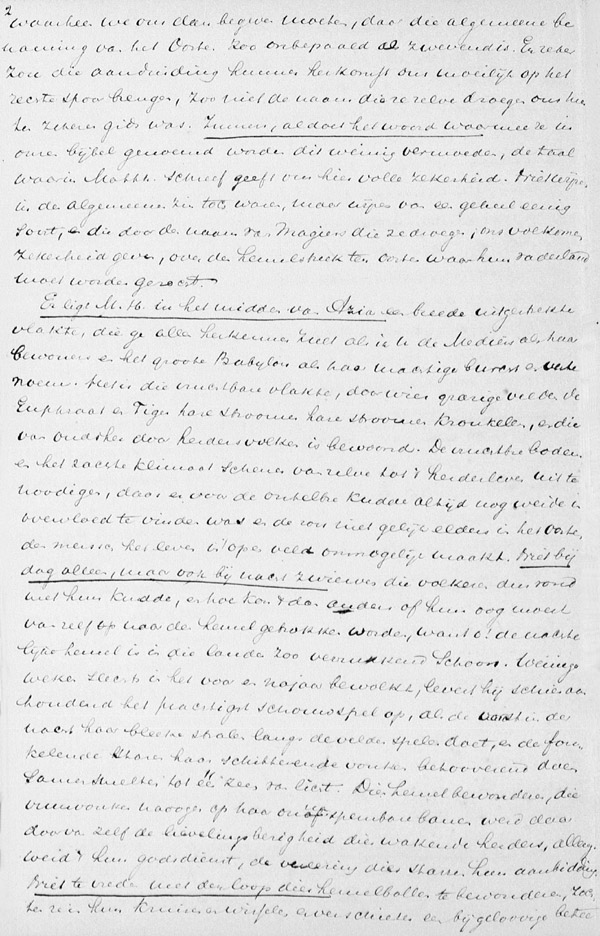 2
waarheen we ons dan begeven moeten, daar die algemeene be
naming van het Oosten zoo onbepaald en zwevend is. En zeker
zou die aanduiding hunner herkomst ons moeilijk op het
rechte spoor brengen, zoo niet de naam die ze zelve droegen ons hier
ten zekeren gids was. Immers, al doet het woord waarmee ze in
onzen bijbel genoemd worden dit weinig vermoeden, de taal
waarin Matth. schreef geeft ons hier volle zekerheid. Niet wijzen
in de algemeenen zin toch waren, maar wijzen van een geheel eenig
soort, en die door den naam van Magiers die ze droegen, ons volkomen
zekerheid geven, over de hemelstreek ten oosten waar hun vaderland
moet worden gezocht.
Er ligt M. H. in het midden van Azia een breede uitgestrekte
vlakte, die ge allen herkennen zult als ik U de Mediërs als haar
bewoners en het groote Babylon als haar machtige burcht en veste
noem. Het is die vruchtbare vlakte, door wier grazige velden de
Euphraat en Tiger hare stroomen hare stroomen kronkelen, en die
van oudsher door herdersvolken is bewoond. De vruchtbre bodem
en het zachte klimaat schenen van zelve tot 't herderleven uit te
noodigen, daar er voor de ontelbre kudde altijd nog weide in
overvloed te vinden was en de zon niet gelijk elders in het Oosten
den mensch het leven in 't open veld onmogelijk maakt. Niet bij
dag alleen, maar ook bij nacht zwierven die volkeren dus rond
met hun kudde, en hoe kon 't dan anders of hun oog moest
van zelf op naar den hemel getrokken worden, want o! de nachte
lijke hemel is in die landen zoo verrukkend schoon. Weinige
weken slechts in het voor en najaar bewolkt, levert hij schier aan
houdend het prachtigst schouwspel op, als de vorstin der
nacht haar bleeke stralen langs de velden spelen doet, en de fon
kelende starren haar schitterende vonken betooverend doen
samensmelten tot één zee van licht. Dien hemel bewonderen, die
vuurvonken naoogen op haar banen werd daar
door van zelf de lievelingsbezigheid dier wakende herders, allengs
werd 't hun godsdienst, de vereering dier starren hun aanbidding.
Niet te vrede met den loop dier hemelbollen te bewonderen, zoch
ten ze in hun kruisen en wisselen en verschieten een bijgeloovige betee